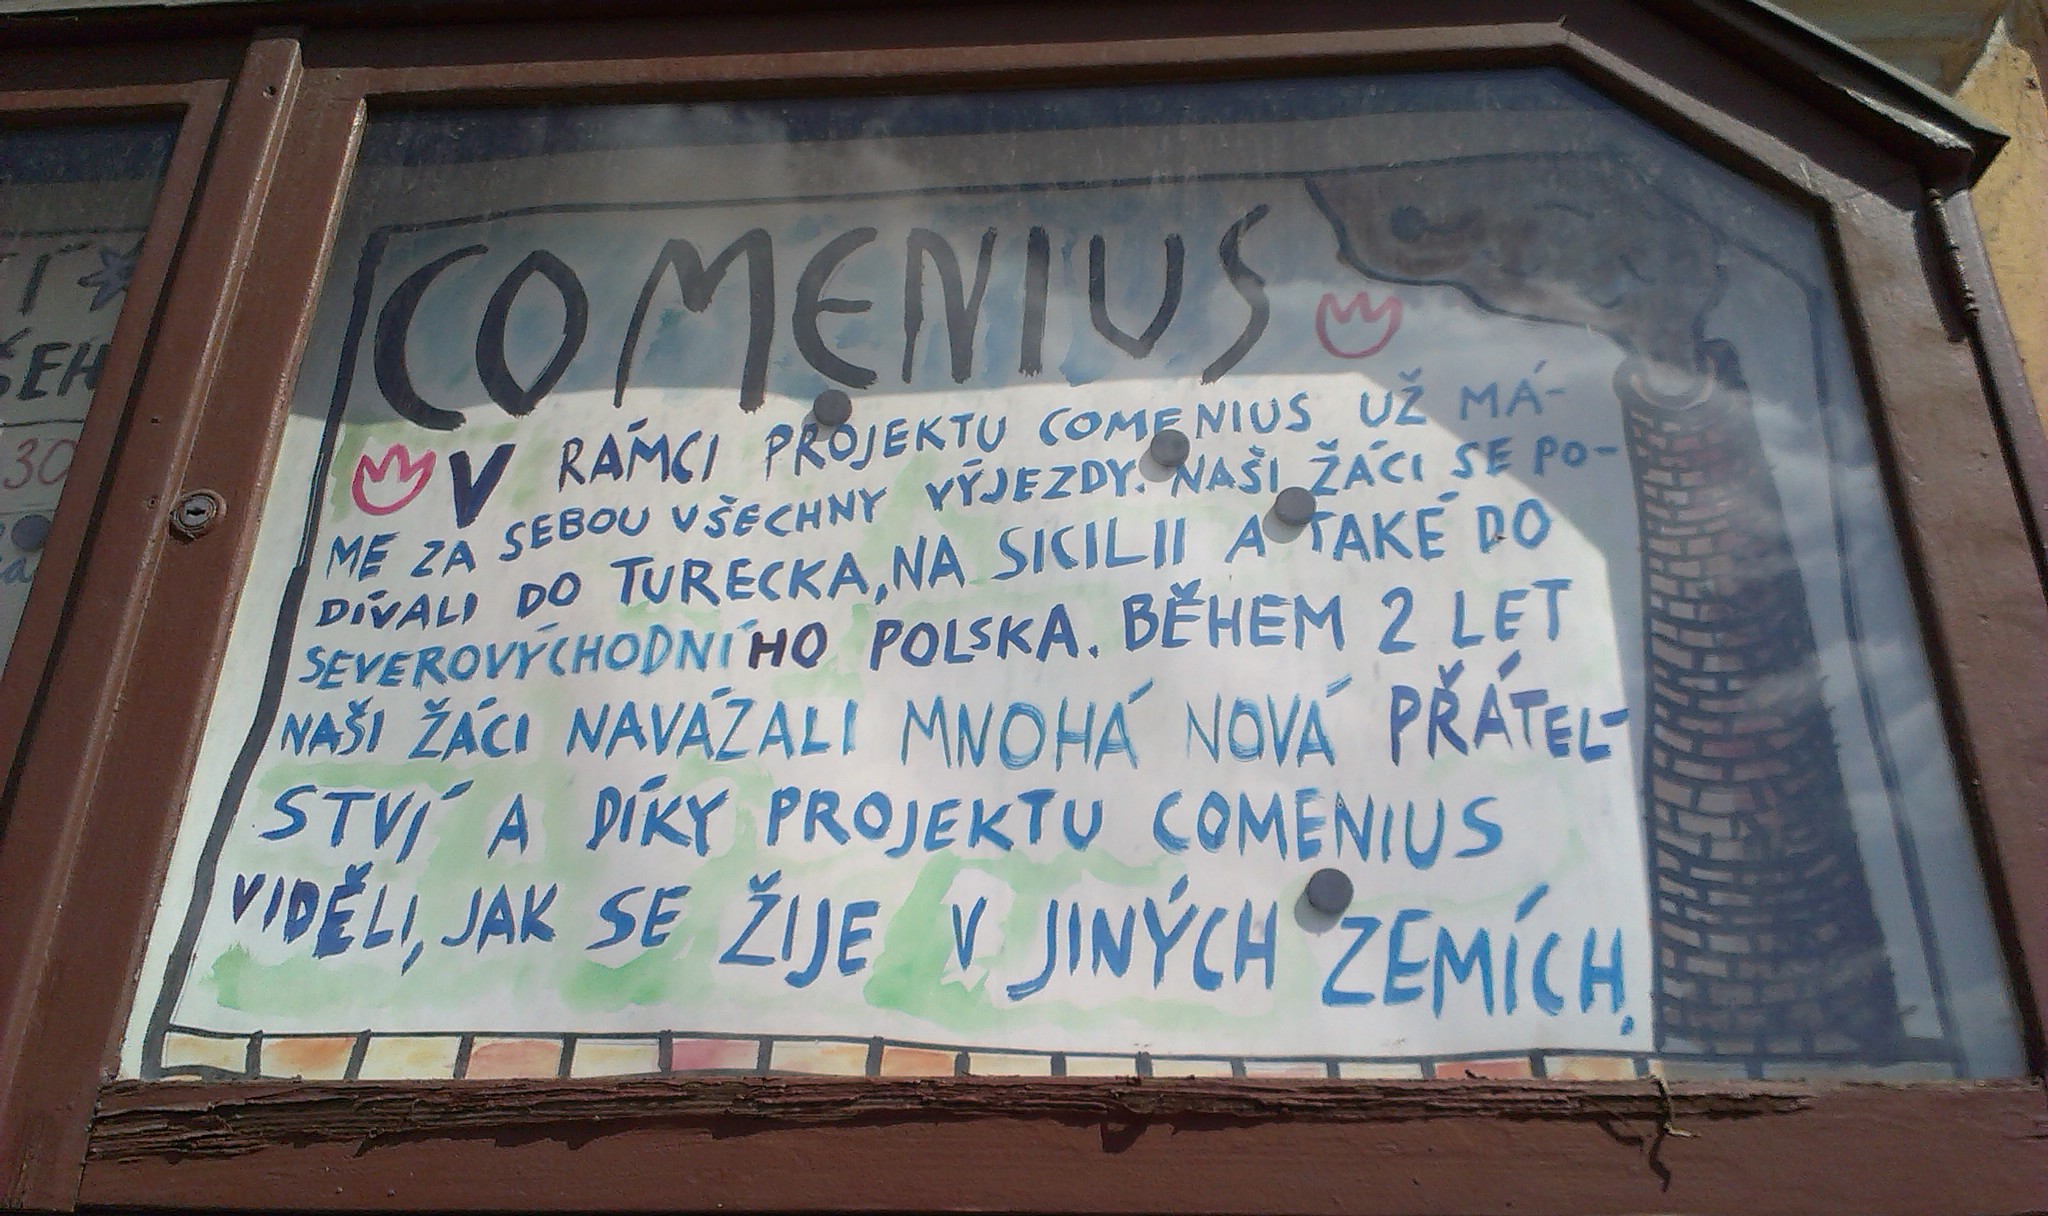 COMENIUS
V RÁMCI PROJEKTU COMENIUS UŽ MÁ-
ME ZA SEBOU VŠECHNY VÝJEZDY. NAŠI ŽÁCI SE PO-
DÍVALI DO TURECKA, NA SICILII A TAKÉ DO
SEVEROVÝCHODNÍHO POLSKA. BĚHEM 2 LET
NAŠI ŽÁCI NAVÁZALI MNOHÁ NOVÁ PŘÁTEL-
STVÍ A DÍKY PROJEKTU COMENIUS
VIDĚLI, JAK SE ŽIJE V JINÝCH ZEMÍCH.
30